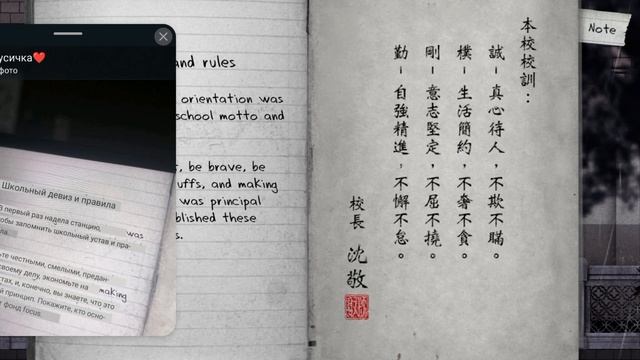 усичка❤️
фото
Школьный девиз и правила
первый раз надела станцию,
тобы запомнить школьный устав и пра-
was
ьте честными, смелыми, предан-
своему делу, экономьте на
тах и, конечно, вы знаете, что это
making
й принцип. Покажите, кто осно-
фонд focus.
and rules
orientation was
school motto and
, be brave, be
uffs, and making
was principal
blished these
s.
本校校訓：
誠－真心待人，不欺不瞞。
樸－生活簡約，不奢不貪。
剛－意志堅定，不屈不撓。
勤－自強精進，不懈不怠。
校長 沈敬
Note